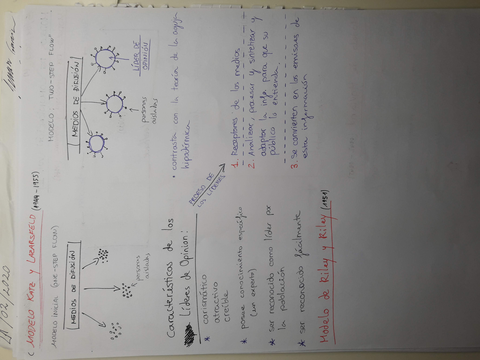 21/04/2020
MODELO KATZ Y LAZARSFELD (1944-1955)
MODELO INICIAL (ONE-STEP FLOW)
MEDIOS DE DIFUSIÓN
personas
aisladas
MODELO: TWO-STEP FLOW
MEDIOS DE DIFUSIÓN
LÍDER DE
OPINIÓN
personas
aisladas
• contrasta con la teoría de la aguja
hipodérmica
Características de los
Líderes de Opinión:
* carismático
atractivo
creíble
* posee conocimiento específico
(un experto)
* ser reconocido como líder por
la población
* ser reconocido fácilmente
MODELO DE
LOS LÍDERES
1. Receptores de los medios
2. Analizar, procesar y sintetizar y
adaptar la info para que su
público la entienda.
3. Se convierten en los emisores de
esta información
Modelo de Riley y Riley (1959)